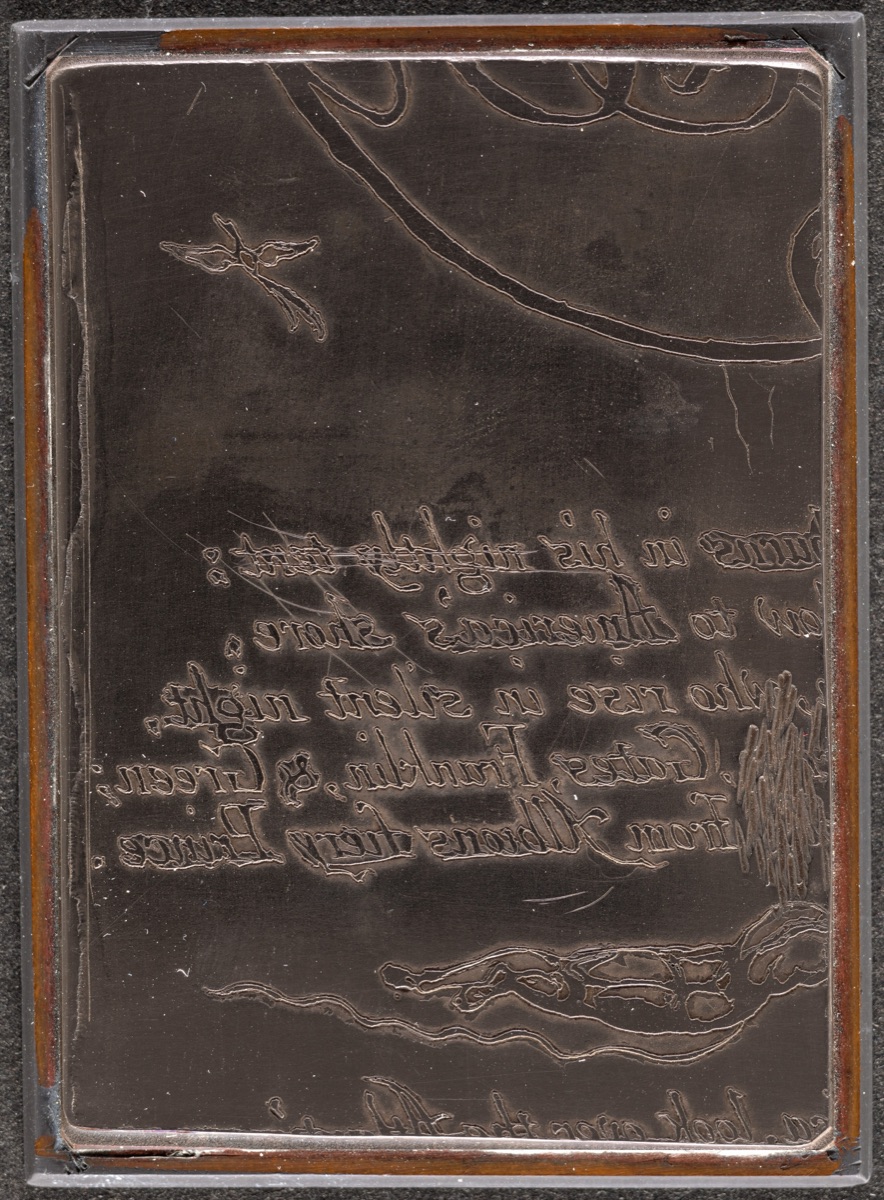 burns in his nightly tent:
low to America's shore;
who rise in silent night,
, Gates, Franklin, & Green;
From Albions fiery Prince.
look over the